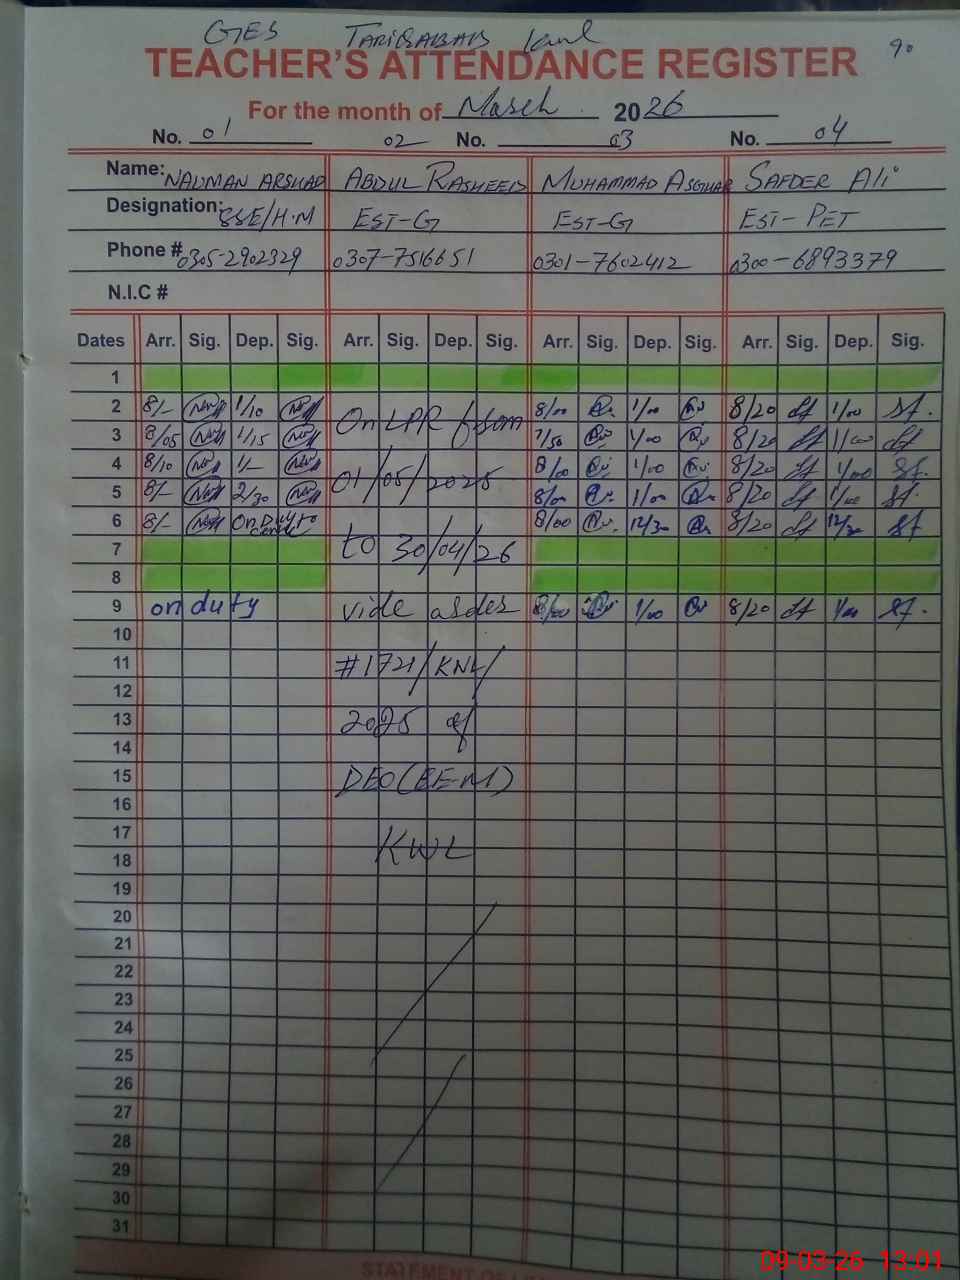 GES TARIQABAD kwl
90
TEACHER'S ATTENDANCE REGISTER
For the month of March 2026
No. 01 02 No. 03 No. 04
Name: NAUMAN ARSHAD ABDUL RASHEED MUHAMMAD ASGHAR SAFDER Ali
Designation: SSE/H.M EST-G EST-G EST-PET
Phone # 0305-2902329 0307-7516651 0301-7602412 0300-6893379
N.I.C #
Dates Arr. Sig. Dep. Sig. Arr. Sig. Dep. Sig. Arr. Sig. Dep. Sig. Arr. Sig. Dep. Sig.
1
2 8/- 1/10 On LPR from 8/00 1/00 8/20 1/00
3 8/05 1/15 7/50 1/00 8/20 1/00
4 8/10 1/- 01/05/2025 8/00 1/00 8/20 1/00
5 8/- 2/30 8/00 1/00 8/20 1/00
6 8/- On Duty to 8/00 12/30 8/20 12/30
7 to 30/04/26
8
9 on duty vide order 8/00 1/00 8/20 1/00
10
11 #1721/KNL/
12
13 2025 of
14
15 DEO(EE-M)
16
17 KWL
18
19
20
21
22
23
24
25
26
27
28
29
30
31
STATEMENT OF
09-03-26 13:01